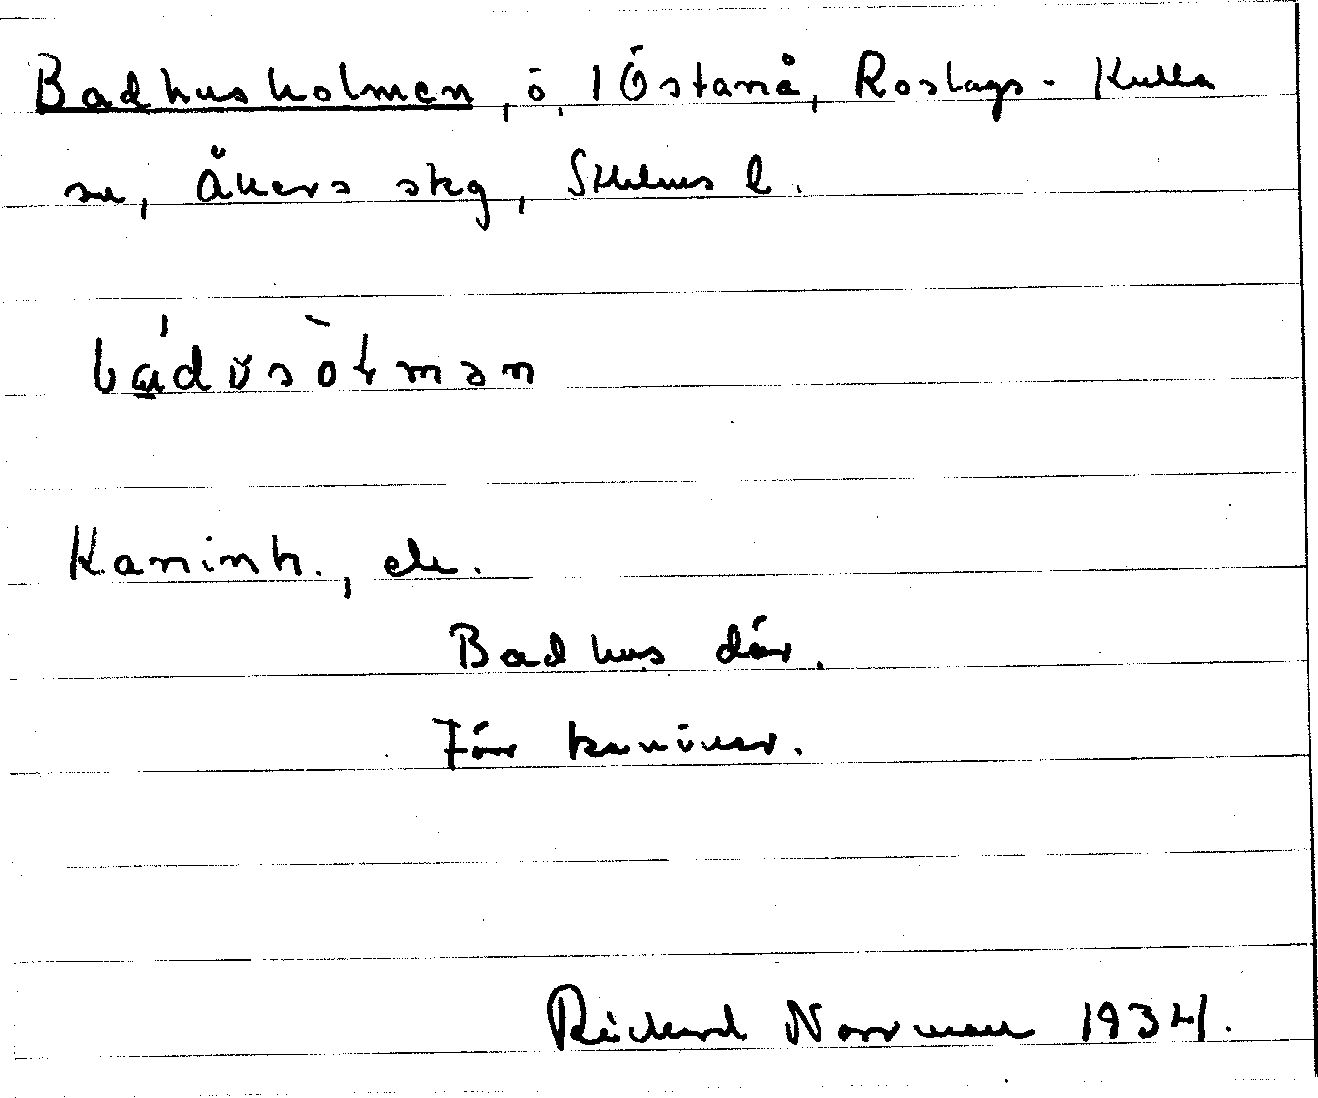 Badhusholmen, ö, 1 Östanå, Roslags-Kulla
sn, Åkers skg, Sthlms l.
bádusòlmən
Kaninh., ele.
Badhus där.
För kaniner.
Richard Norrman 1934.